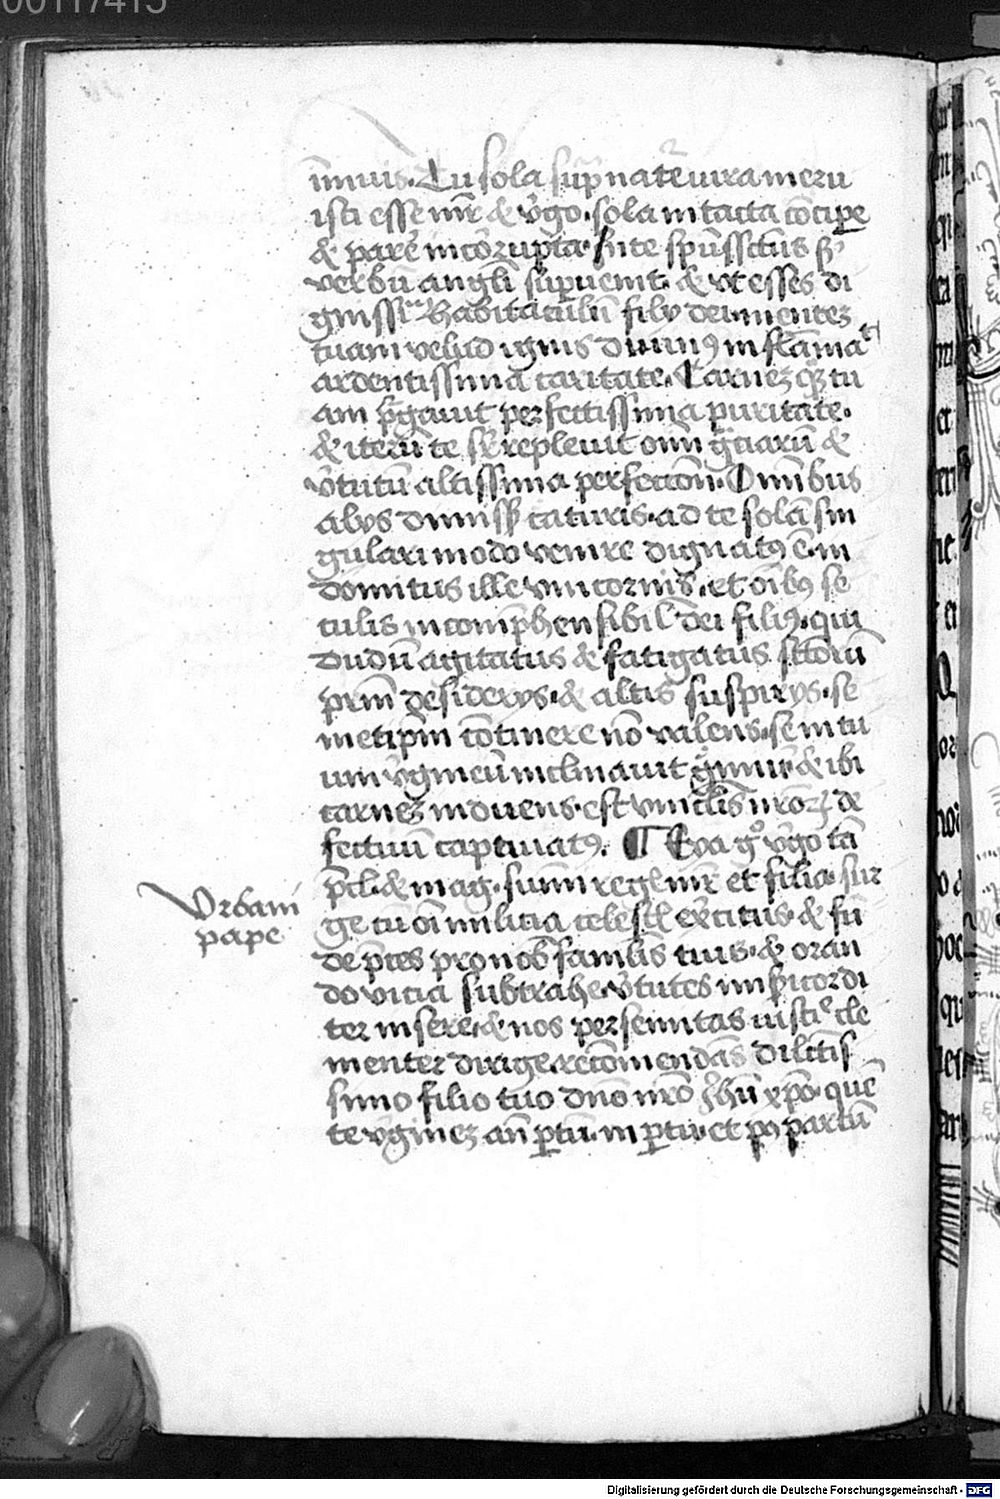 00117415
innuis. Tu sola sup̄ natūre iura meru
isti esse mr̄ & v̄go. sola intacta cōcipe
& parē incōrupta. In te spūssctūs s̄
verbū angl̄i supuenit. & vt esses di
gnissim̄ habitaculū filij dei. mentez
tuam velud ignis diuin9 inflāmat
ardentissima caritate. Carnez q3 tu
am p̄gauit perfectissima puritate.
& iterū te repleuit om̄i gr̄ciarū &
v̄tutū altissima perfectiōn. Omībus
alijs dimiss̄ caturis. ad te solā sin
gulari modo venire dignat9 ē. in
domitus ille vnicornis. et oībus se
culis incomp̄hensibil̄ dei fili9. qui
dudū agitatus & fatigatus sctōrū
pr̄m desiderijs. & altis suspirijs. se
metip̄m cōtinere nō valens. se in tu
um v̄gineū inclinauit gr̄miū. & ibi
carnez induens. est vinclīs nr̄oz de
fectuū captiuat9. ¶ Eya g° v̄go tā
p̄cl. & mag. sum̄i regl̄ mr̄ et filia. sur
ge cū oī militia celestl̄ ex̄citus. & fū
de p̄ces pro nob̄ famlīs tuis. & oran
do vicia subtrahe. v̄tutes mip̄icordi
ter insere. & nos per semitas iusticie cle
menter dirige. recōmendās dilctīs
simo filio tuo dn̄o nr̄o Jh̄u xp̄o. quē
te v̄ginez an̄ ptū. in ptu. et p9 partū
Vrbani
pape
Digitalisierung gefördert durch die Deutsche Forschungsgemeinschaft - DFG